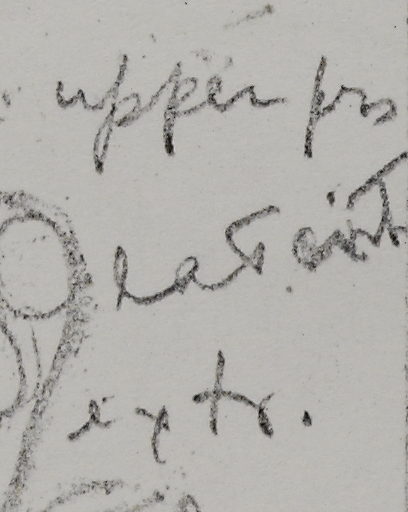 upper pro
lat. int
extr.